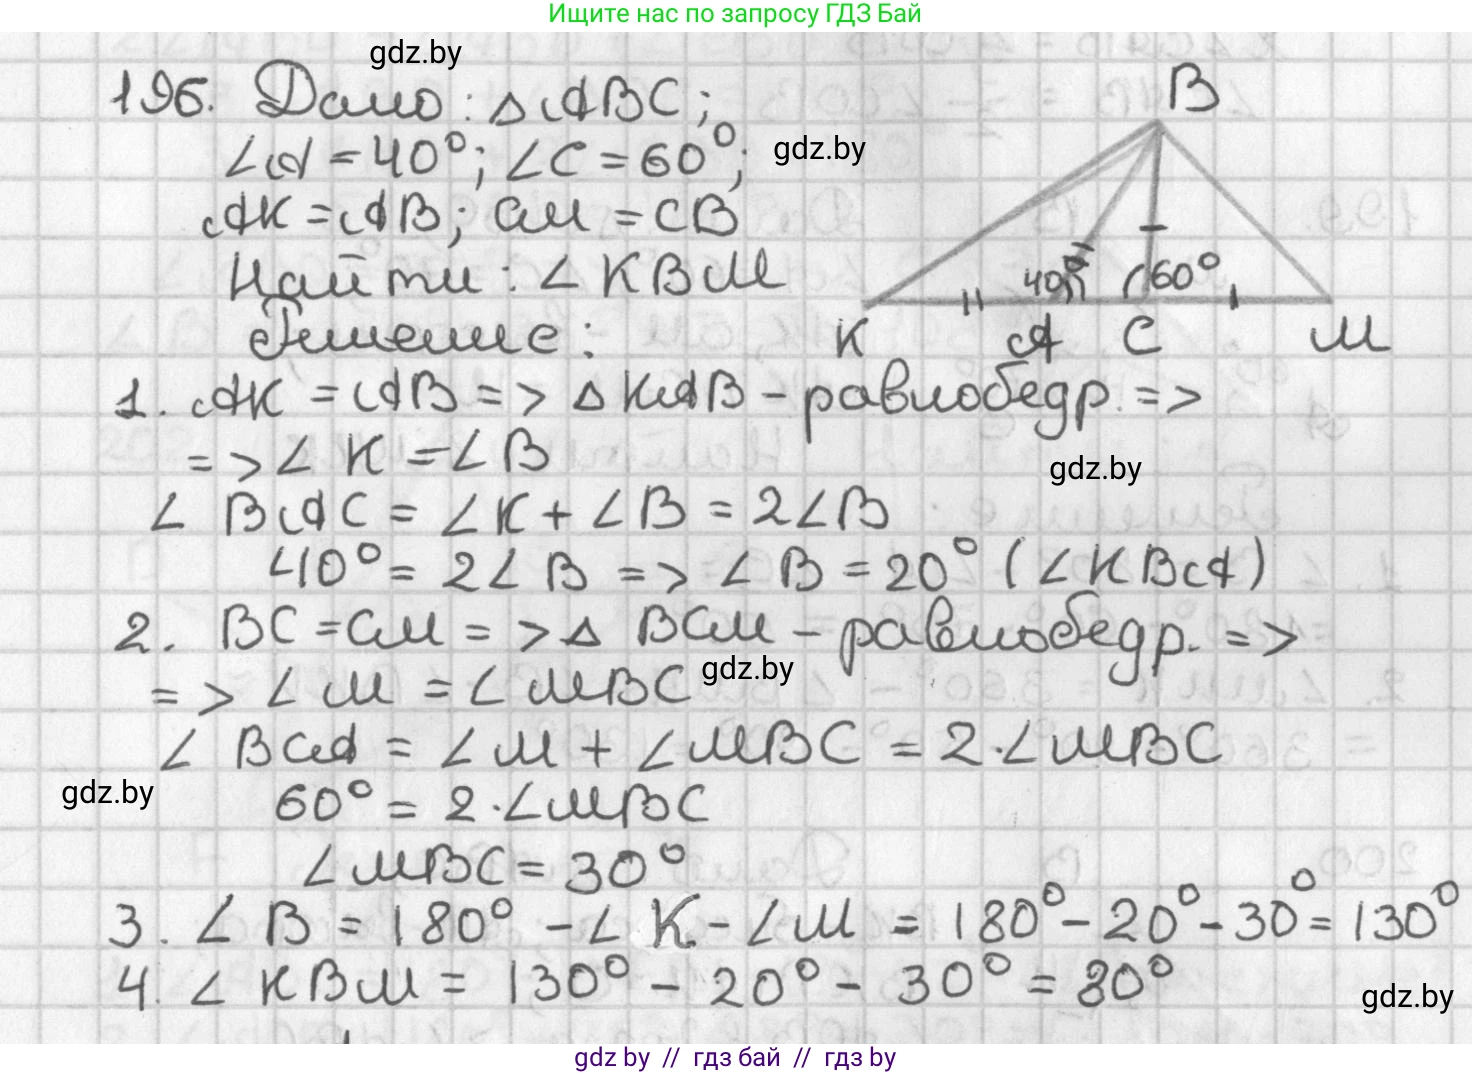 Ищите нас по запросу ГДЗ Бай
gdz.by
196. Дано: △ABC;
∠A = 40°; ∠C = 60°;
gdz.by
AK = AB; CM = CB
Найти: ∠KBM
Решение:
B
40° 60°
K A C M
1. AK = AB => △KAB - равнобедр. =>
=> ∠K = ∠B
gdz.by
∠BAC = ∠K + ∠B = 2∠B
40° = 2∠B => ∠B = 20° (∠KBA)
2. BC = CM => △ BCM - равнобедр. =>
=> ∠M = ∠MBC
gdz.by
∠BCA = ∠M + ∠MBC = 2·∠MBC
gdz.by
60° = 2·∠MBC
∠MBC = 30°
3. ∠B = 180° - ∠K - ∠M = 180° - 20° - 30° = 130°
4. ∠KBM = 130° - 20° - 30° = 80°
gdz.by
gdz by // гдз бай // гдз by